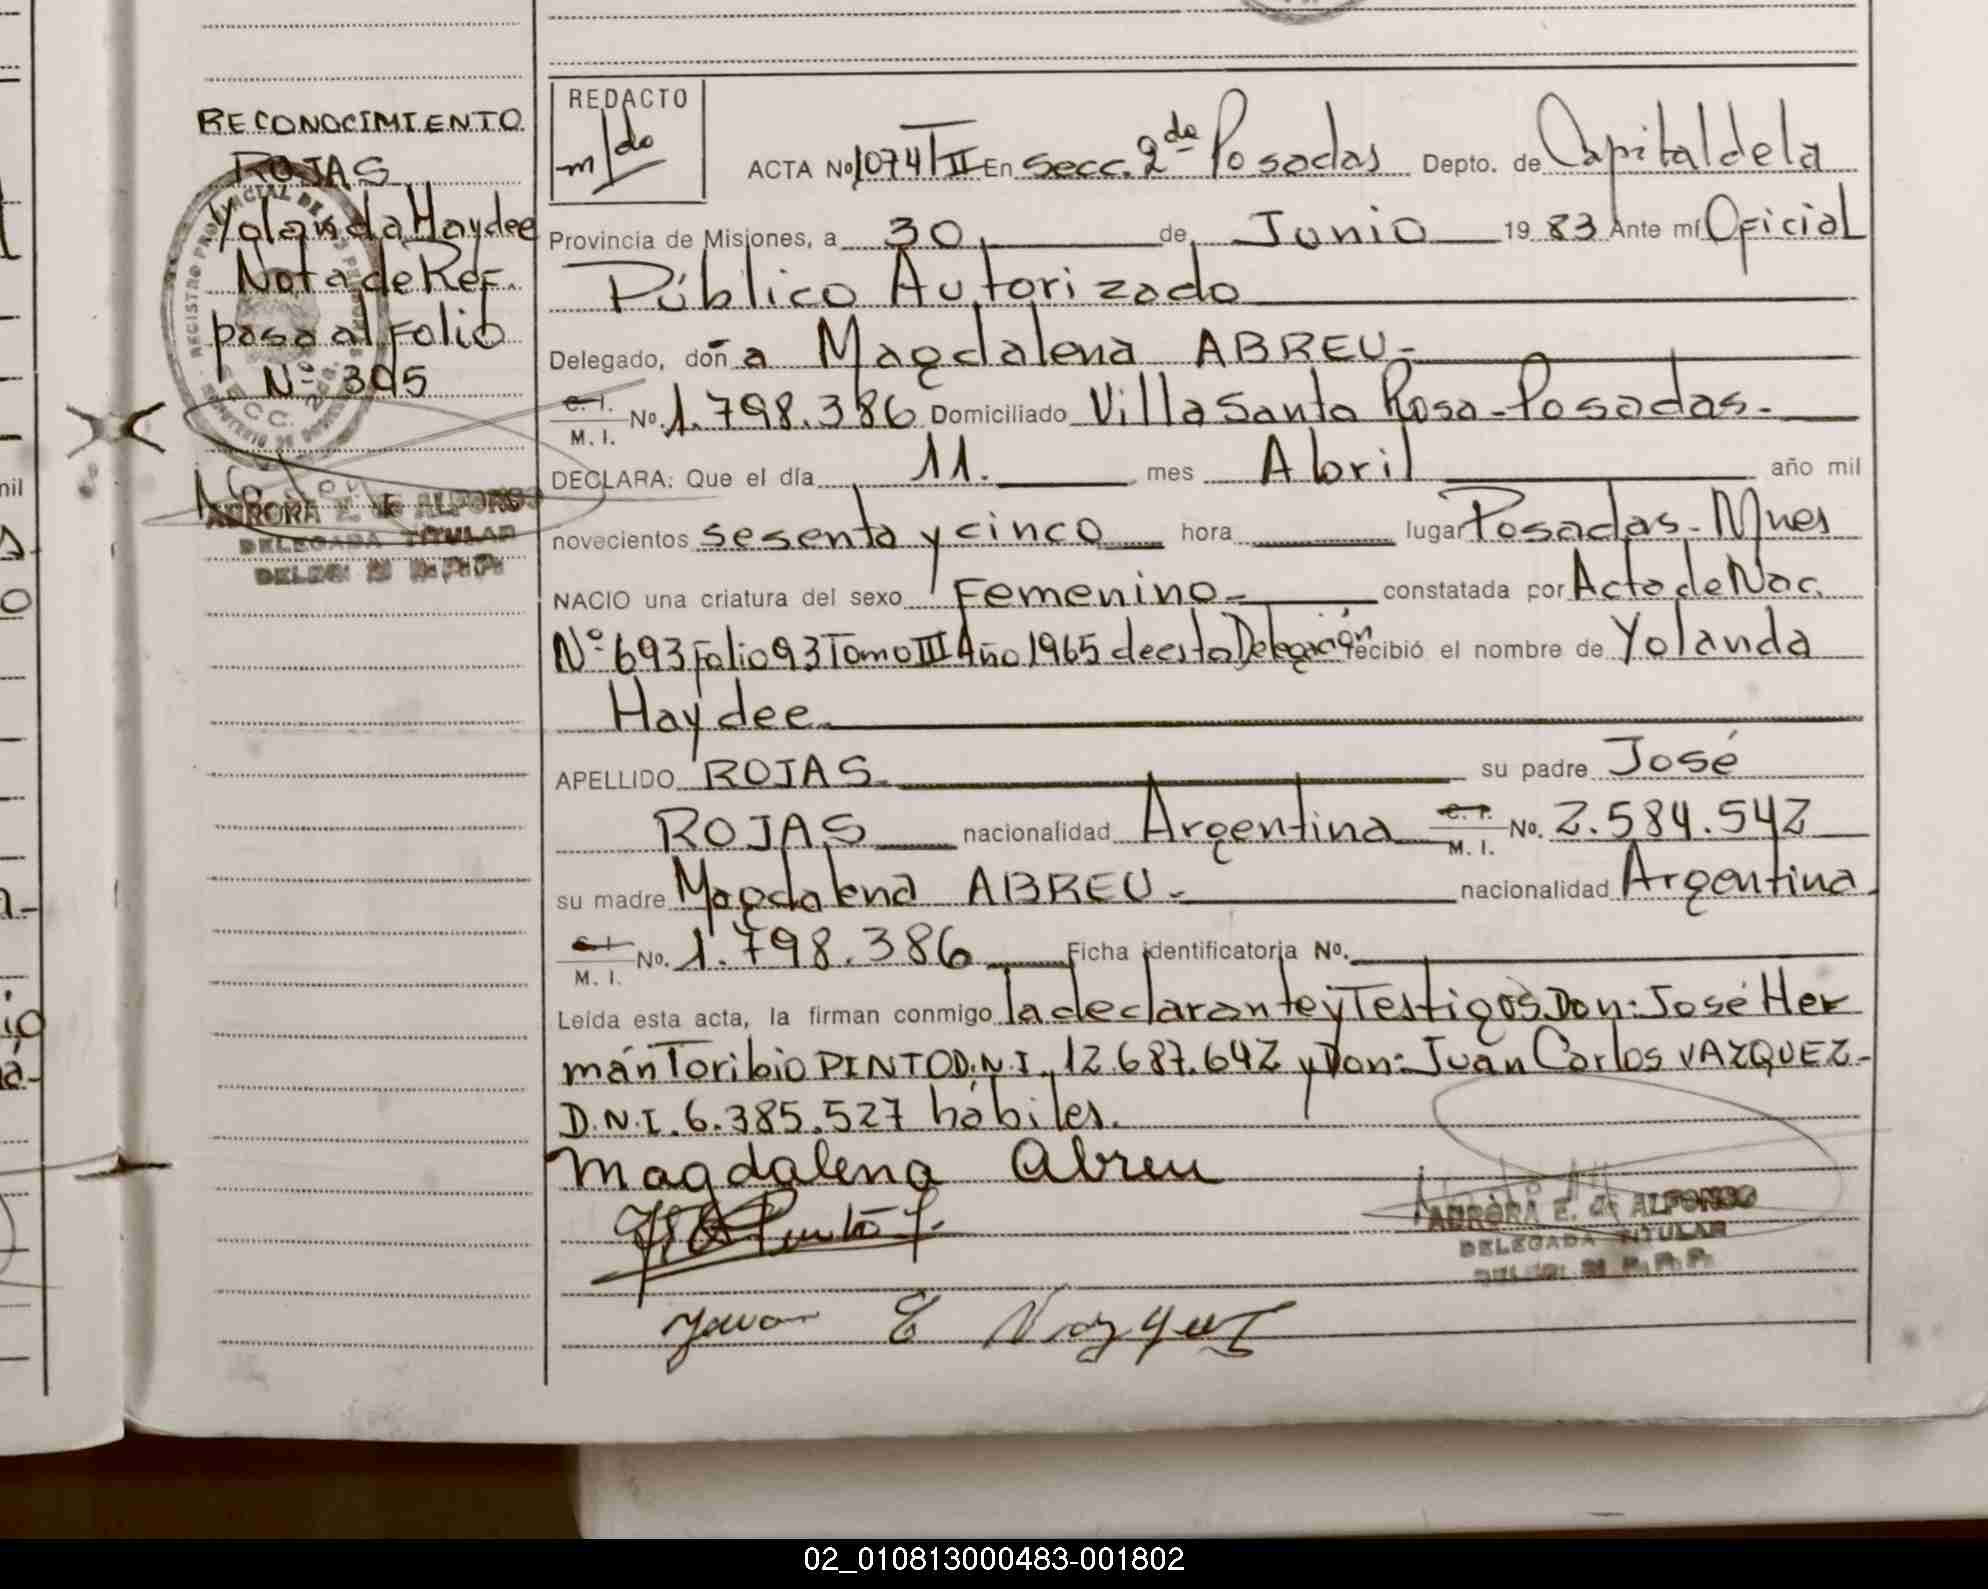 RECONOCIMIENTO
ROJAS
Yolanda Haydee
Nota de Ref.
pasa al Folio
Nº 305
AURORA E. de ALFONSO
DELEGADA TITULAR
REDACTO
m/do
ACTA No 1074 TII En Secc. 2da Posadas Depto. de Capital de la
Provincia de Misiones, a 30 de Junio 19 83 Ante mí Oficial
Público Autorizado
Delegado, doña Magdalena ABREU.-
C. I.
M. I. No. 1.798.386 Domiciliado Villa Santa Rosa-Posadas.-
DECLARA: Que el día 11. mes Abril año mil
novecientos sesenta y cinco hora lugar Posadas-Mnes
NACIO una criatura del sexo Femenino.- constatada por Acta de Nac.
Nº 693 Folio 93 Tomo III Año 1965 de esta Delegación recibió el nombre de Yolanda
Haydee.
APELLIDO ROJAS. su padre José
ROJAS nacionalidad Argentina C. I. M. I. No. 2.584.542
su madre Magdalena ABREU.- nacionalidad Argentina.
C. I.
M. I. No. 1.798.386 Ficha identificatoria No.
Leída esta acta, la firman conmigo la declarante y Testigos Don: José Her
mán Toribio PINTO D.N.I. 12.687.642 y Don: Juan Carlos VAZQUEZ-
D.N.I. 6.385.527 hábiles.
Magdalena Abreu
AURORA E. de ALFONSO
DELEGADA TITULAR
Juan C Vazquez
02_010813000483-001802